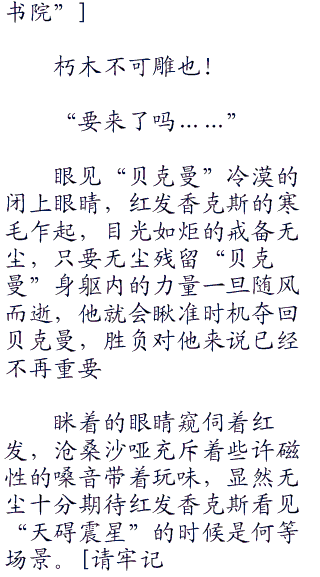 书院”]
朽木不可雕也！
“要来了吗……”
眼见“贝克曼”冷漠的
闭上眼睛，红发香克斯的寒
毛乍起，目光如炬的戒备无
尘，只要无尘残留“贝克
曼”身躯内的力量一旦随风
而逝，他就会瞅准时机夺回
贝克曼，胜负对他来说已经
不再重要
眯着的眼睛窥伺着红
发，沧桑沙哑充斥着些许磁
性的嗓音带着玩味，显然无
尘十分期待红发香克斯看见
“天碍震星”的时候是何等
场景。[请牢记